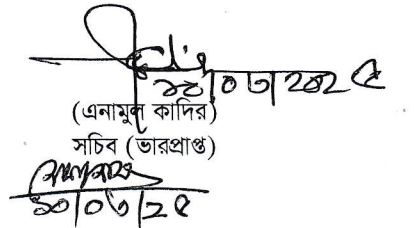 ১০/০৩/২০২৫
(এনামুল কাদির)
সচিব (ভারপ্রাপ্ত)
১০/০৩/২৫